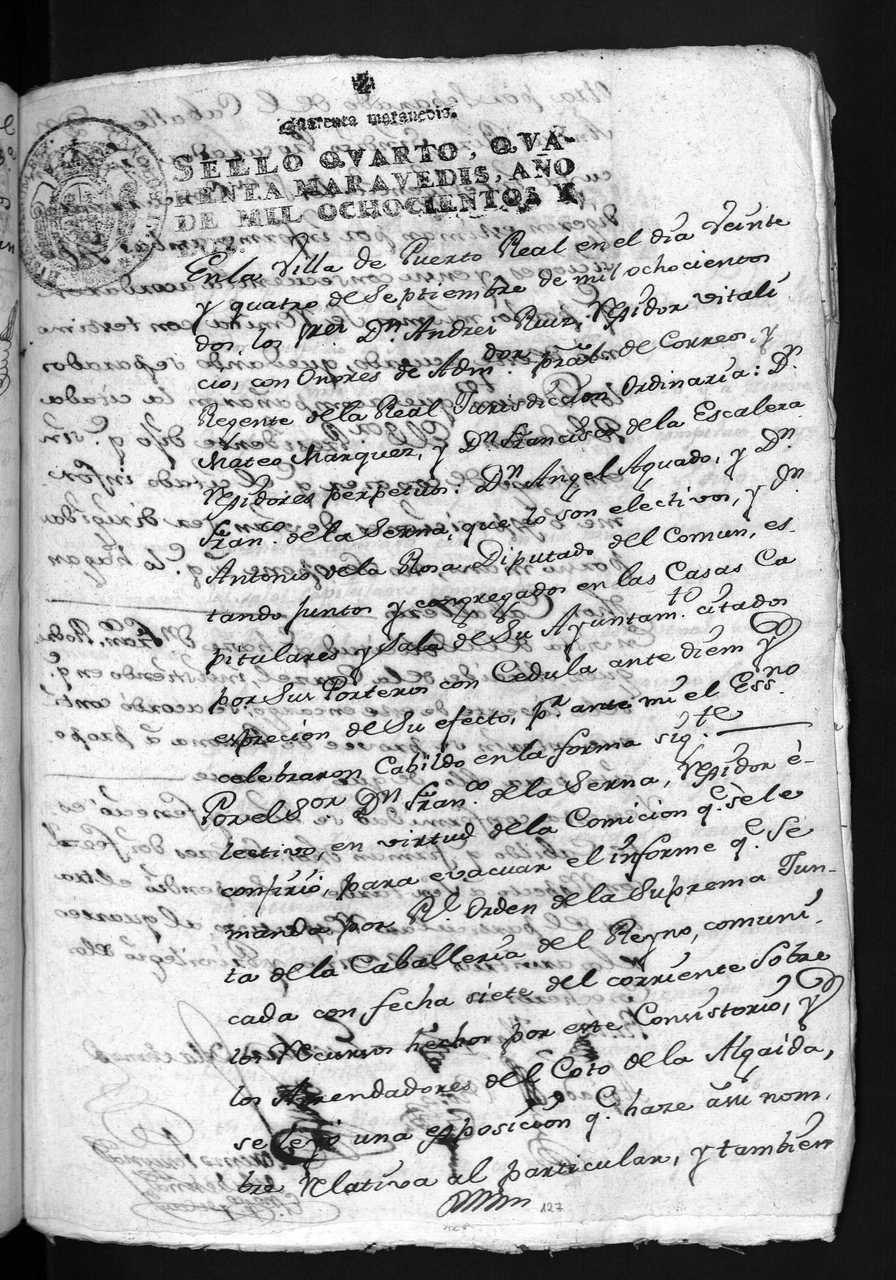 Quarenta maravedis.
SELLO QVARTO, QVA-
RENTA MARAVEDIS, AÑO
DE MIL OCHOCIENTOS Y
DOS.
En la Villa de Puerto Real en el dia Veinte
y quatro de Septiembre de mil ochocientos
dos, los Sres. Dn. Andres Ruiz, Rexidor vitali
cio, con Onores de Admdor. pral. de Correos, y
Regente de la Real Jurisdiccion Ordinaria: Dn.
Mateo Marquez, y Dn. Francisco de la Escalera
Rexidores perpetuos: Dn. Angel Aguado, y Dn.
Franco. de la Serna, que lo son electivos, y Dn.
Antonio de la Rosa Diputado del Comun, es-
tando juntos y congregados en las Casas Ca
pitulares y Sala de Su Ayuntamto. citados
por Sus Porteros con Cedula ante diem y
espreción de Su efecto, pr. ante mi el Essno.
celebraron Cabildo en la forma sigte.
Por el Sor. Dn. Franco. de la Serna, Rexidor e-
lectivo, en virtud de la Comicion qe. se le
confirió, para evacuar el informe qe. Se
manda por Rl. Orden de la Suprema Jun-
ta de la Caballeria del Reyno, comuni-
cada con fecha siete del corriente Sobre
los Recursos hechos por este Consistorio, y
los Arrendadores del Coto de la Algaida,
se leyó una esposicion qe. hace a su nom-
bre relativa al particular, y tambien
127